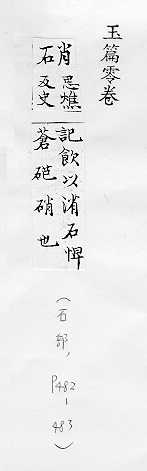 玉篇零卷
硝 思樵
反史
記飲以消石埤
蒼硝也
(石部, P482-483)